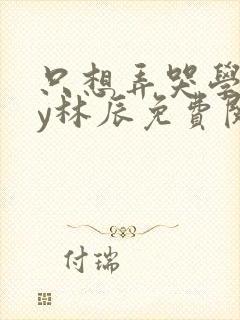 只想弄哭學
y林辰免費閱
付瑞